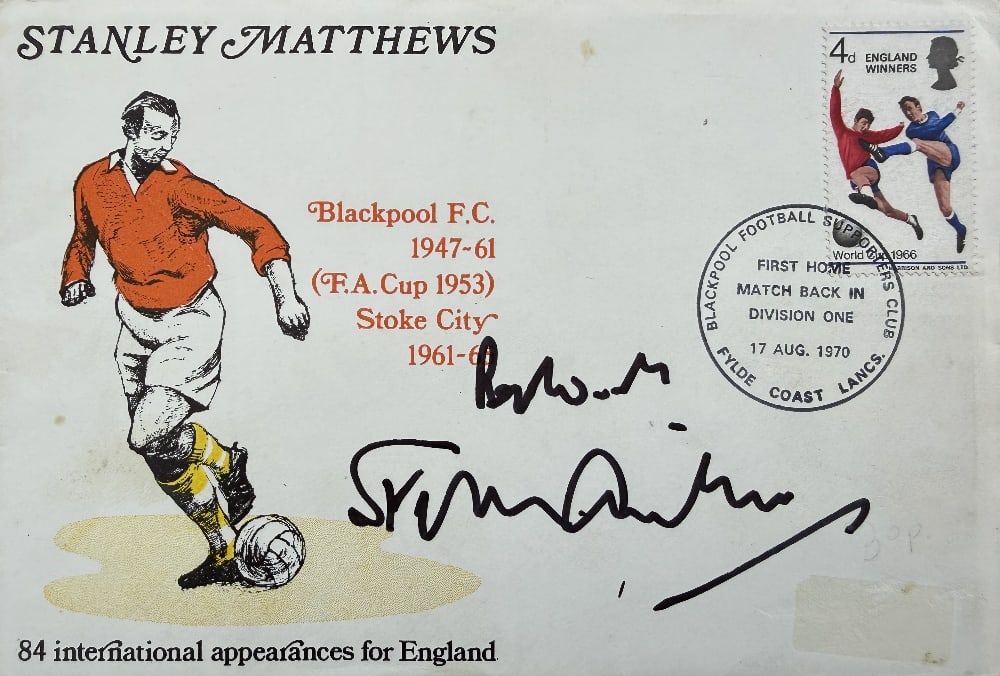 STANLEY MATTHEWS
4d ENGLAND
WINNERS
World Cup 1966
HARRISON AND SONS LTD
Blackpool F.C.
1947-61
(F.A. Cup 1953)
Stoke City
1961-6
BLACKPOOL FOOTBALL SUPPORTERS CLUB
FIRST HOME
MATCH BACK IN
DIVISION ONE
17 AUG. 1970
FYLDE COAST LANCS.
Best Wishes
Stanley Matthews
30p
84 international appearances for England